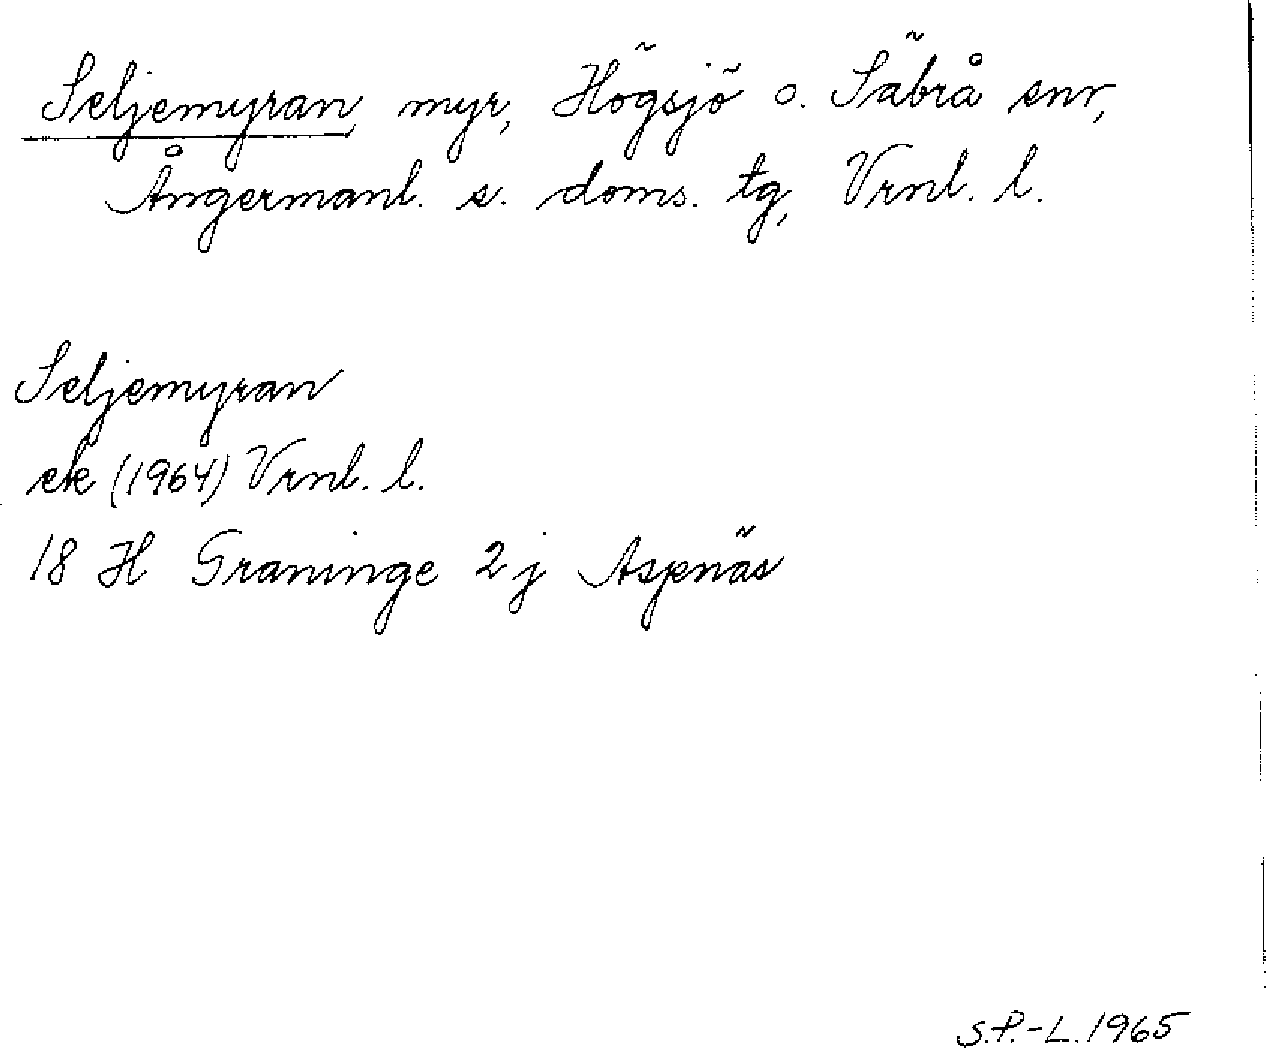 Seljemyran myr, Högsjö o. Säbrå snr,
Ångermanl. s. doms. tg, Vrnl. l.
Seljemyran
ek (1964) Vrnl. l.
18 H Graninge 2j Aspnäs
S.P.-L. 1965